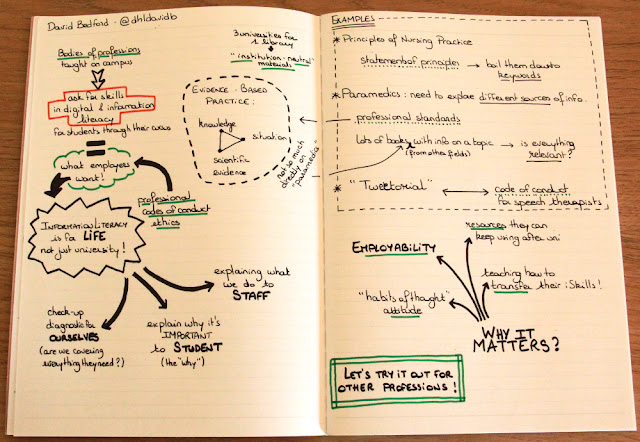 David Bedford - @dhldavidb
Bodies of professions
taught on campus
ask for skills
in digital & information
literacy
for students through their
=
what employers
want!
professional
codes of conduct
ethics
INFORMATION LITERACY
is for LIFE
not just university!
check-up
diagnostic for
OURSELVES
(are we covering
everything they need?)
explain why it's
IMPORTANT
to STUDENT
(the "why")
explaining what
we do to
STAFF
3 universities for
1 library
"institution-neutral"
materials
EVIDENCE-BASED
PRACTICE:
knowledge
situation
scientific
evidence
not so much
directly on
"paramedia"
EXAMPLES
* Principles of Nursing Practice
statements of principles → boil them down to
keywords
* Paramedics: need to explore different sources of info.
professional standards
Lots of books with info on a topic → is everything
(from other fields) relevant?
* "Tweetorial" ↔ code of conduct
for speech therapists
EMPLOYABILITY
resources they can
keep using after uni
teaching how to
transfer their iSkills!
"habits of thought"
attitude
WHY IT
MATTERS?
LET'S TRY IT OUT FOR
OTHER PROFESSIONS!